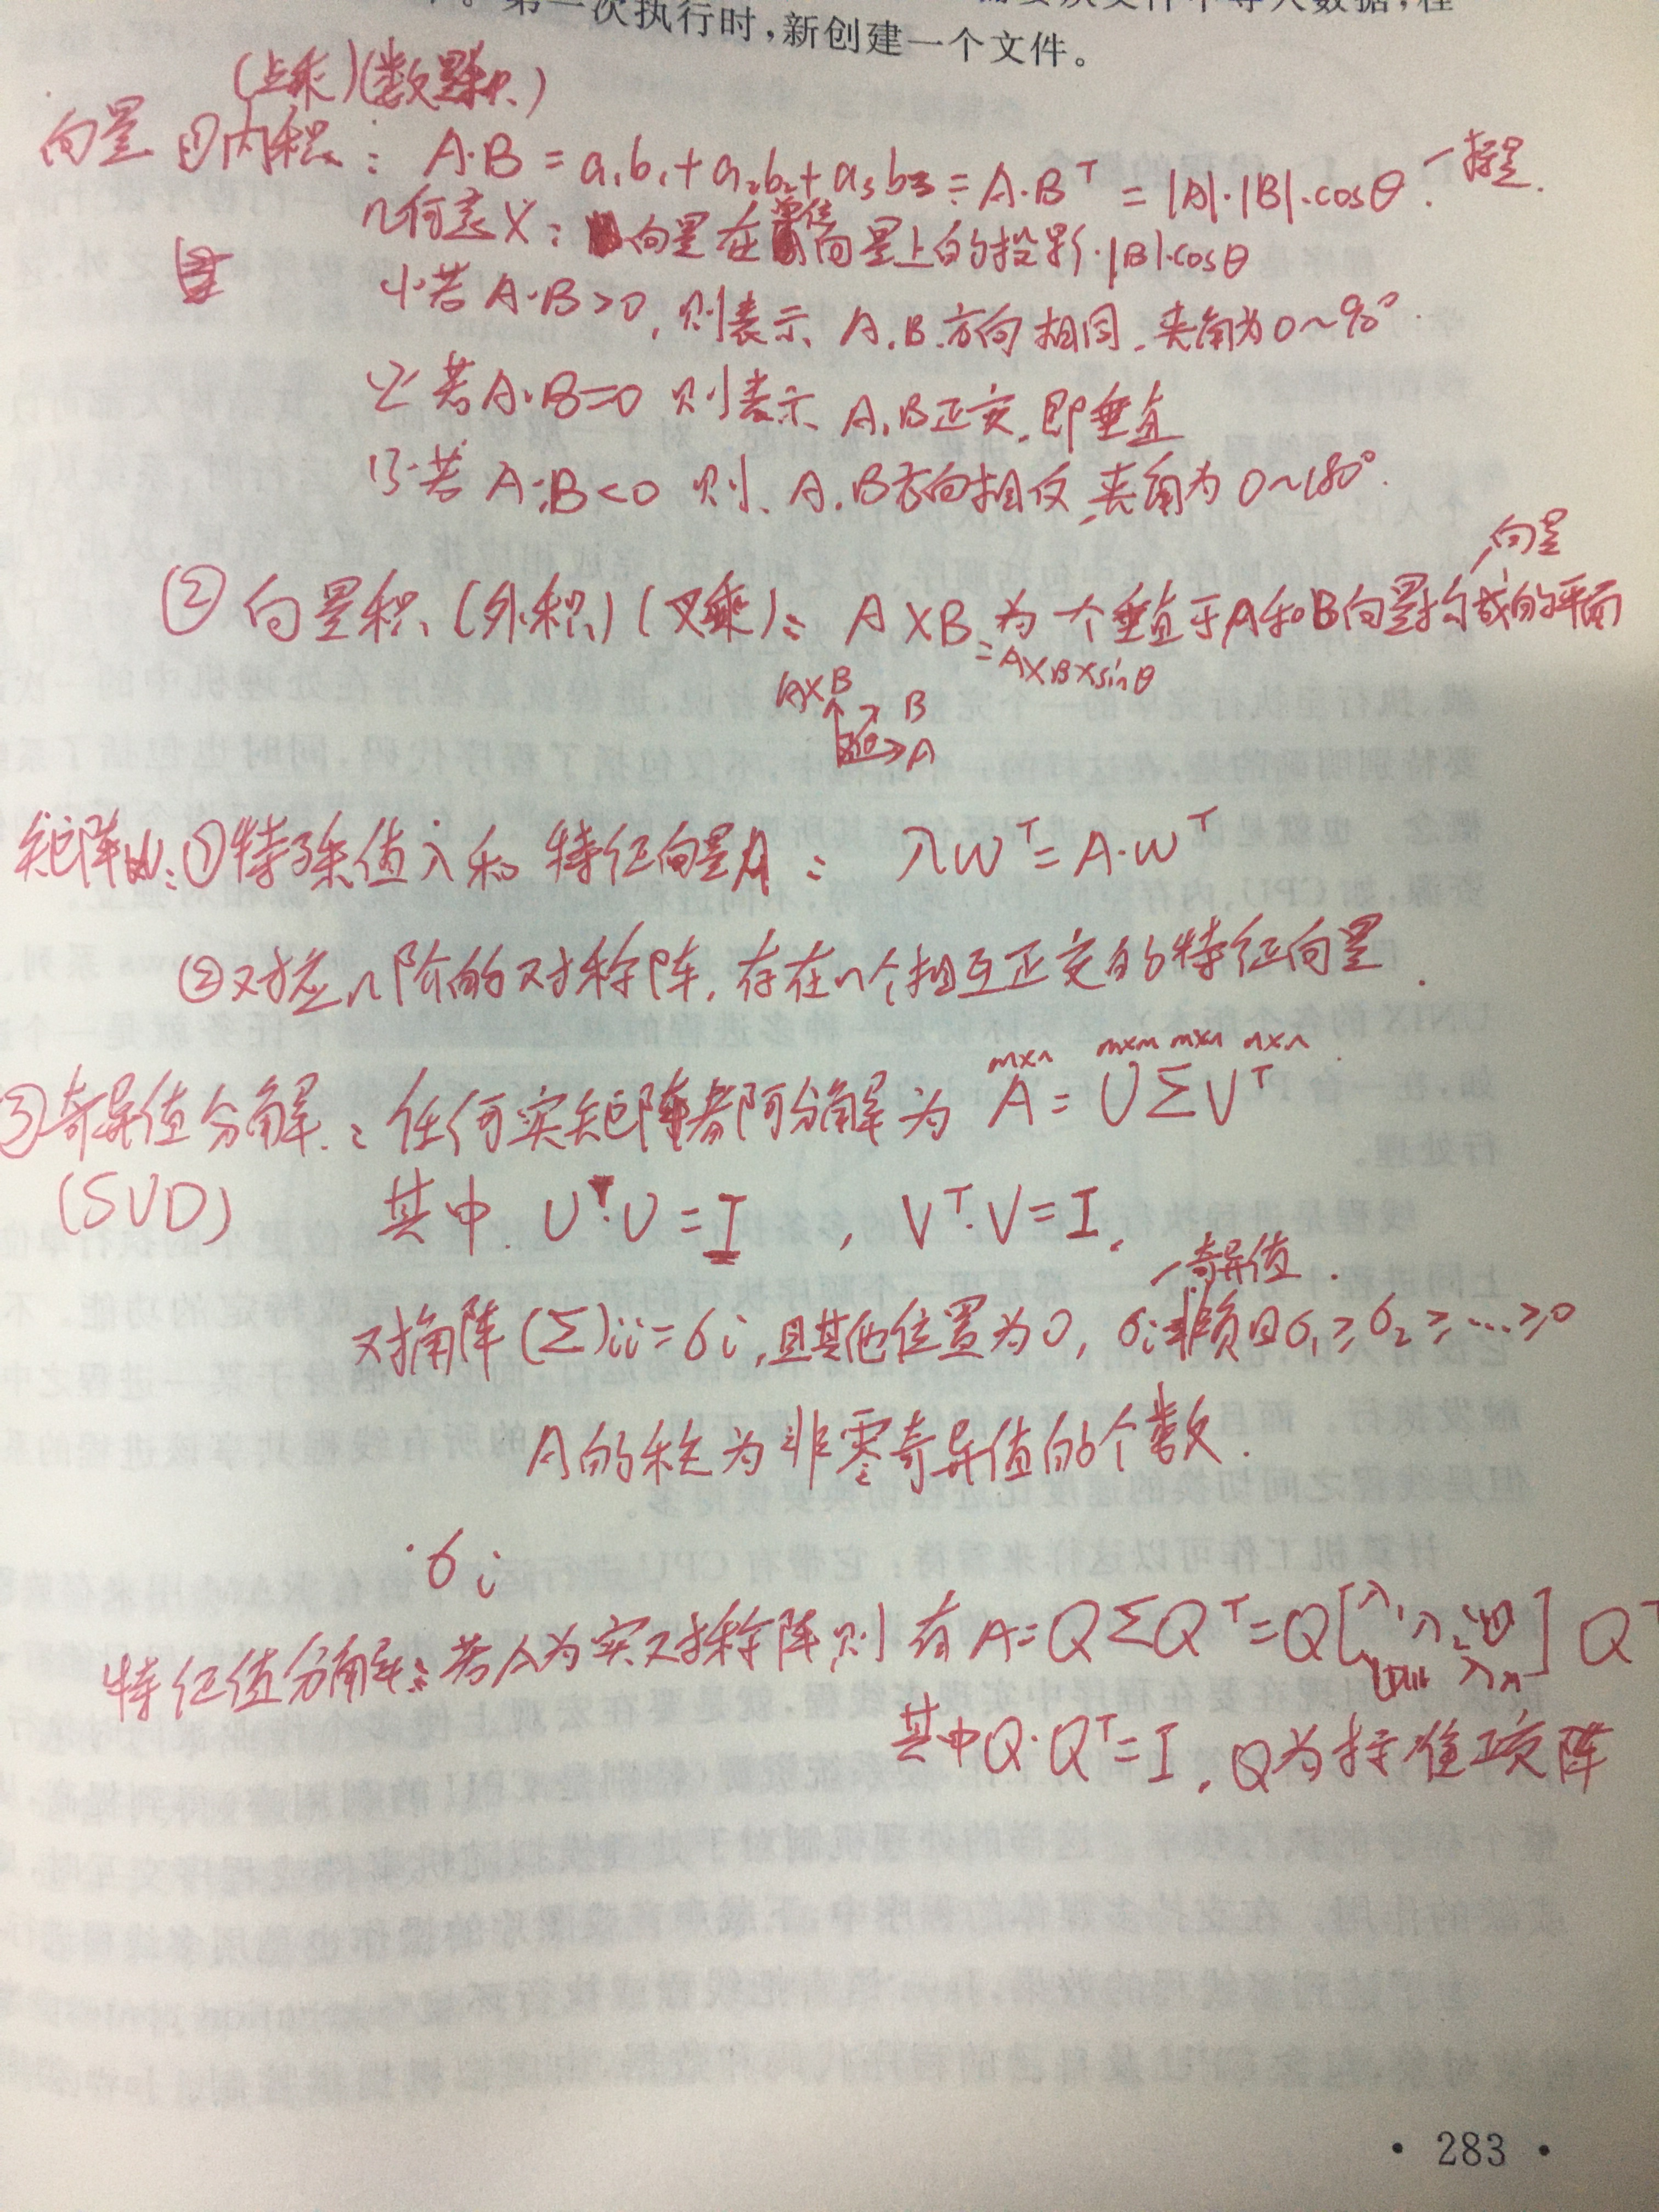 第一次执行时,新创建一个文件。
(点乘)(数量积)
向量 ①内积: A·B = a₁b₁+a₂b₂+a₃b₃ = A·Bᵀ = |A|·|B|·cosθ. 标量.
几何意义: 向量在单位向量上的投影·|B|·cosθ
(1)·若 A·B>0, 则表示 A,B.方向相同. 夹角为0~90°.
(2) 若A·B=0 则表示 A,B正交,即垂直
(3)·若 A·B<0 则、A,B方向相反,夹角为 0~180°.
向量
② 向量积(外积)(叉乘): A×B 为一个垂直于A和B向量构成的平面
=A×B×sinθ
A×B
B
θ
A
矩阵: ①特殊值λ和 特征向量A: λwᵀ = A·wᵀ
②对应n阶的对称阵,存在n个相互正交的特征向量.
m×n m×m m×n n×n
③奇异值分解: 任何实矩阵都可分解为 A = UΣVᵀ
(SVD) 其中. Uᵀ·U = I , Vᵀ·V = I.
奇异值.
对角阵 (Σ)ii = σi,且其他位置为0, σi非负且σ₁≥σ₂≥…≥0
A的秩为非零奇异值的个数.
σi
特征值分解: 若A为实对称阵则 有 A=QΣQᵀ=Q[λ₁ λ₂ λn] Qᵀ
其中Q·Qᵀ=I, Q为标准正交阵
· 283 ·